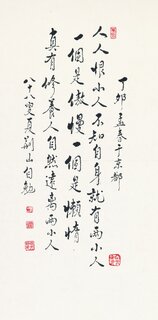 人人恨小人不知自身就有两小人
一個是傲慢一個是懒惰
真有修養人自然遠离两小人
丁卯孟春于京都
八十八叟夏荆山自勉